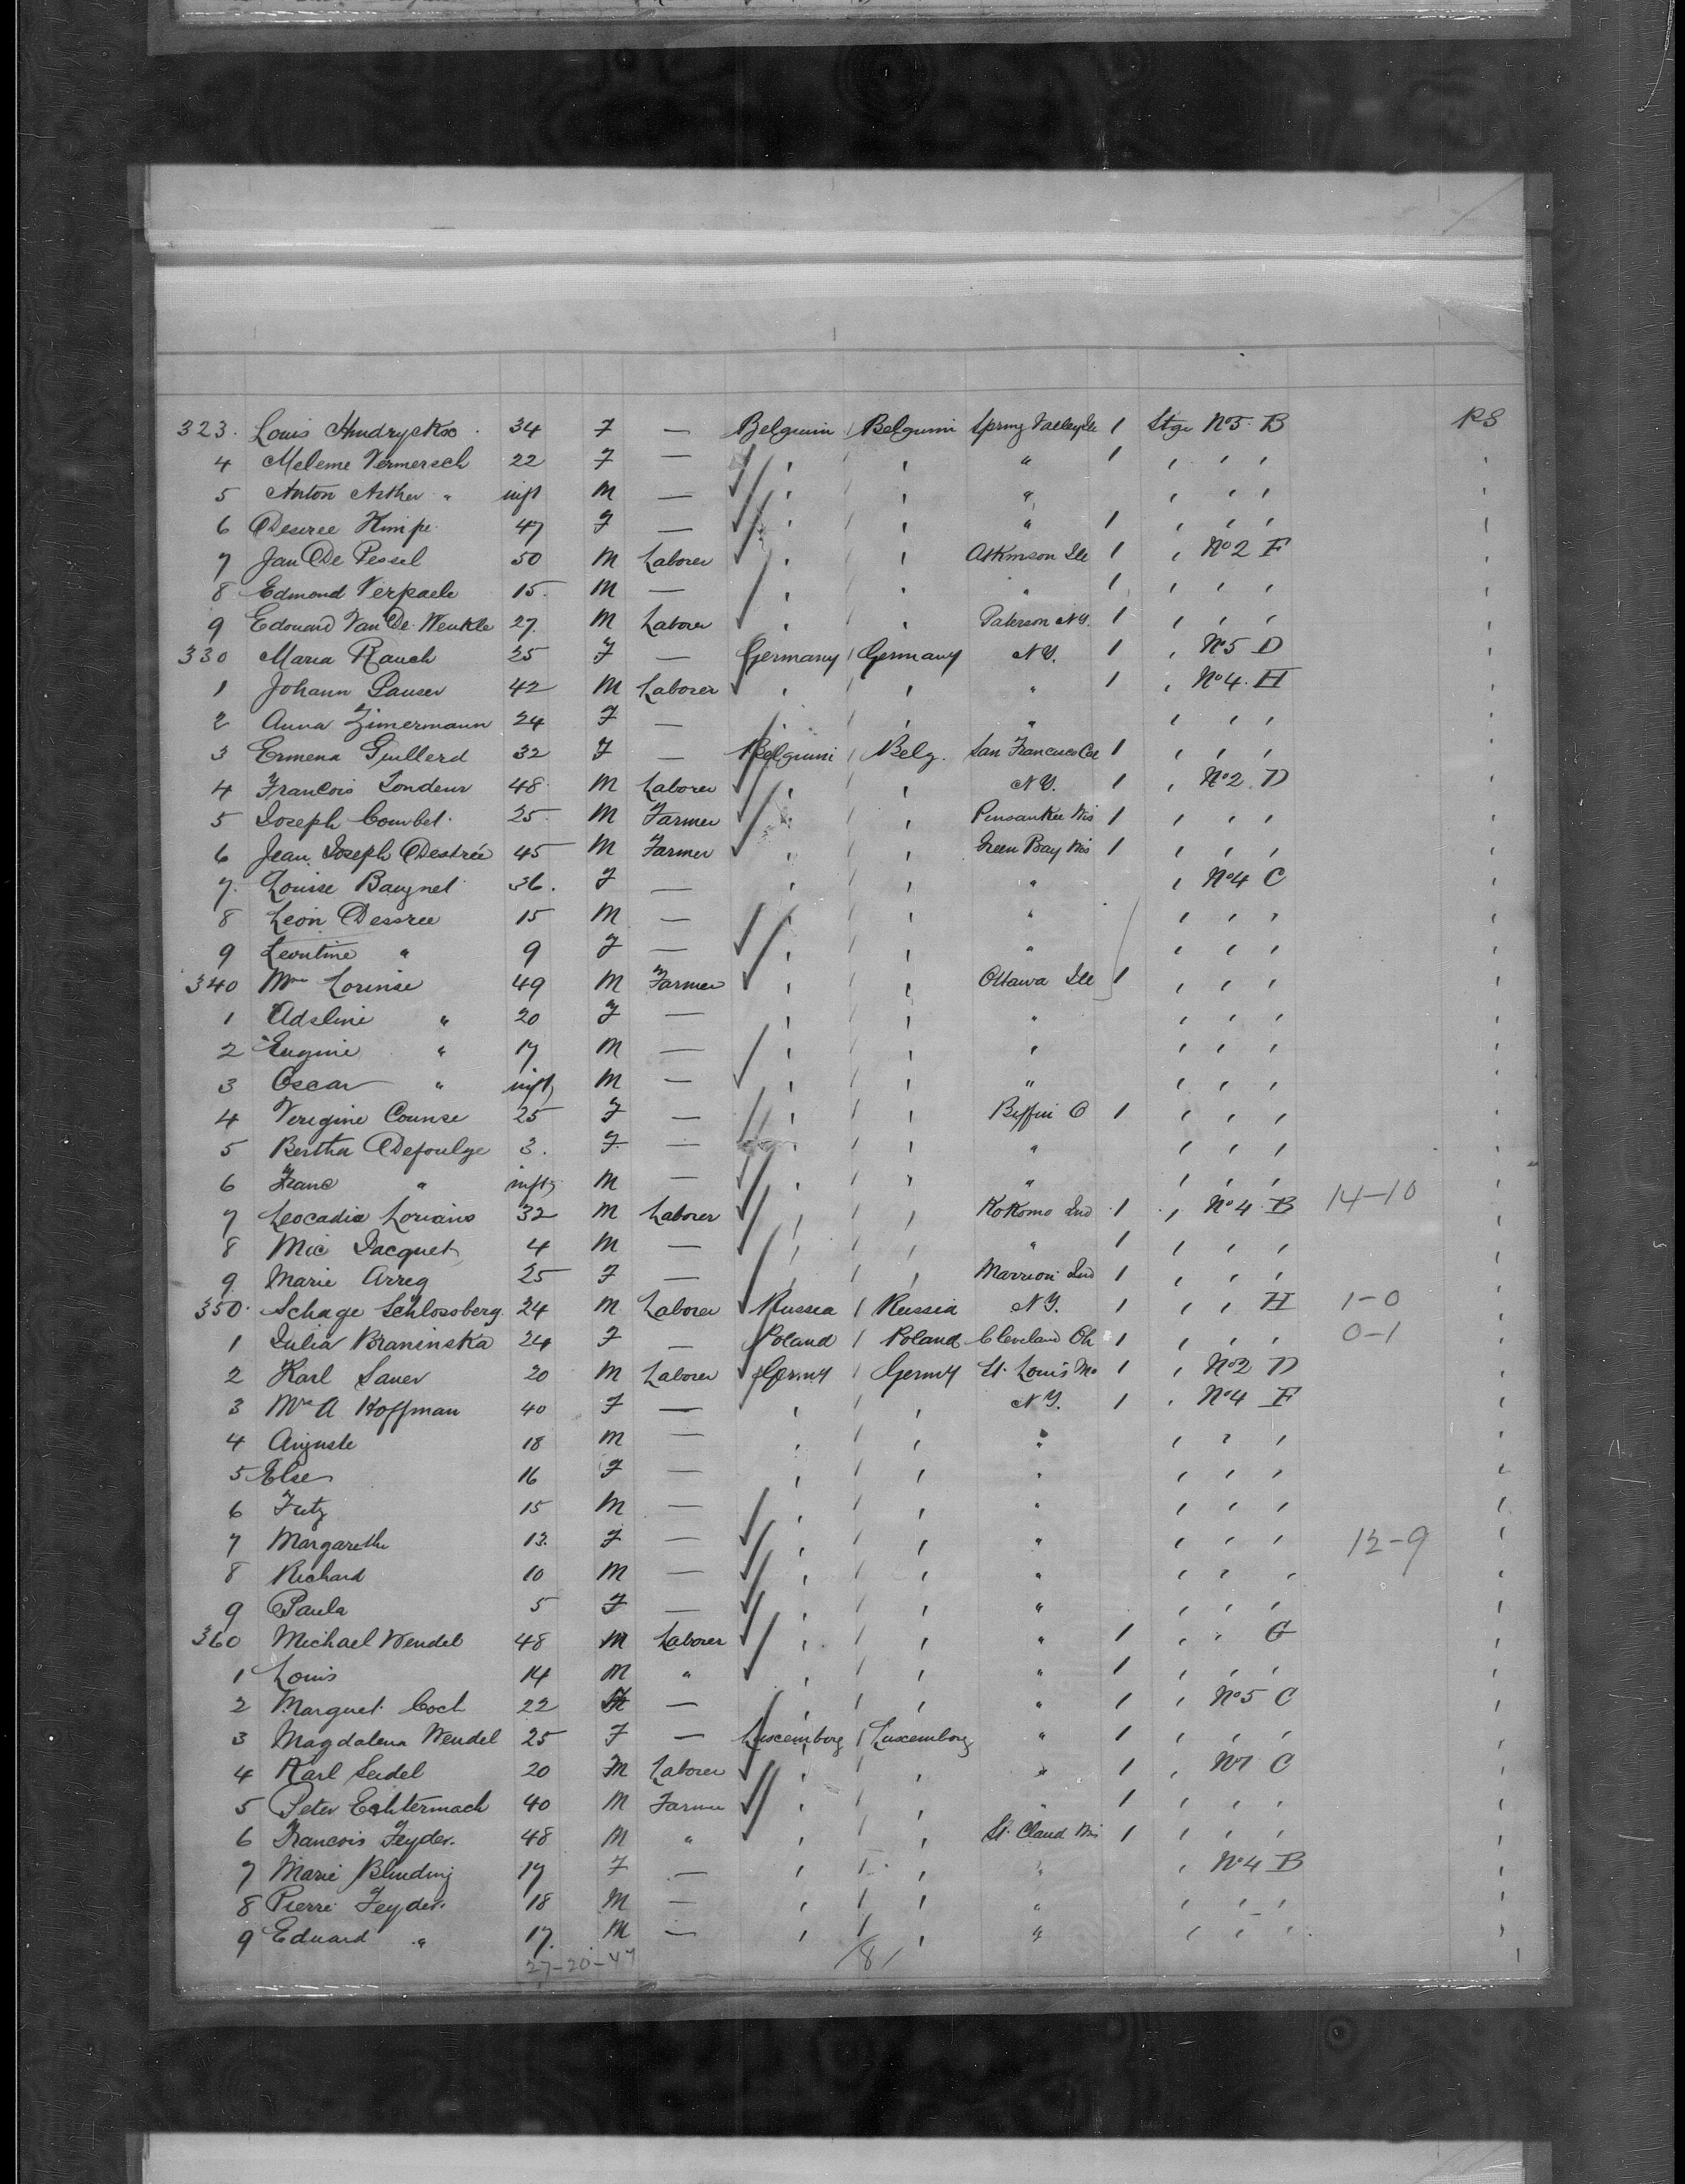 323. Louis Hendryckse 34 F — Belguim / Belguim Spring Valley Ile 1 Stge No 5 B RS
4 Meleme Vermersch 22 F — ' / ' " 1 ' ' '
5 Anton Arther " inft M — ' / ' " ' ' '
6 Desiree Kimpe 47 F — ' / ' " 1 ' ' '
7 Jan De Pessel 50 M Laborer ' / ' Atkinson Ile 1 ' No 2 F
8 Edmond Verpaele 15. M — ' / ' " 1 ' ' '
9 Edouard Van De Wenkle 27. M Laborer ' / ' Paterson N.Y. 1 ' ' '
330 Maria Rauch 25 F — Germany / Germany N.Y. 1 ' No 5 D
1 Johann Pauser 42 M Laborer ' / ' " 1 ' No 4. H
2 Anna Zimermann 24 F — ' / ' " ' ' '
3 Ermena Guillerd 32 F — Belguim / Belg. San Francisco Cal 1 ' ' '
4 Francois Tondeur 48 M Laborer ' / ' N.Y. 1 ' No 2. D
5 Joseph Combel 25 M Farmer ' / ' Pensaukee Wis 1 ' ' '
6 Jean Joseph Destrée 45 M Farmer ' / ' Green Bay Wis 1 ' ' '
7. Louise Baugnet 36. F — ' / ' " ' No 4 C
8 Leon Dessree 15 M — ' / ' " ' ' '
9 Leontine " 9 F — ' / ' " ' ' '
340 Lorinse 49 M Farmer ' / ' Ottawa Ile 1 ' ' '
1 Adeline " 20 F — ' / ' " ' ' '
2 Eugine " 17 M — ' / ' " ' ' '
3 Oscar " inft M — ' / ' " ' ' '
4 Veregine Counse 25 F — ' / ' Biffin O 1 ' ' '
5 Bertha Defoulge 3. F — ' / ' " ' ' '
6 Franc " inft M — ' / ' " ' ' '
7 Leocadia Lorians 32 M Laborer ' / ' Kokomo Ind 1 ' No 4 B 14-10
8 Mic Jacquet 4 M — ' / ' " 1 ' ' '
9 Marie Arreg 25 F — ' / ' Marrion Ind 1 ' ' '
350. Schage Schlossberg 24 M Laborer Russia / Russia N.Y. 1 ' ' H 1-0
1 Julia Braninska 24 F — Poland / Poland Cleveland Oh 1 ' ' ' 0-1
2 Karl Sauer 20 M Laborer Germy / Germy St. Louis Mo 1 ' No 2 D
3 Mrs A Hoffman 40 F — ' / ' N.Y. 1 ' No 4 F
4 Auguste 18 M — ' / ' " ' ' '
5 Else 16 F — ' / ' " ' ' '
6 Fritz 15 M — ' / ' " ' ' '
7 Margarethe 13. F — ' / ' " ' ' ' 12-9
8 Richard 10 M — ' / ' " ' ' '
9 Paula 5 F — ' / ' " ' ' '
360 Michael Wendel 48 M Laborer ' / ' " 1 ' " G
1 Louis 14 M " ' / ' " 1 ' ' '
2 Marguet Coch 22 — ' / ' " 1 ' No 5 C
3 Magdalena Wendel 25 F — Luxemborg / Luxemborg " 1 ' ' '
4 Karl Seidel 20 M Laborer ' / ' " 1 ' No 1 C
5 Peter Echtermach 40 M Farmer ' / ' " 1 ' ' '
6 Francois Feyder. 48 M " ' / ' St. Cloud Wis 1 ' ' '
7 Marie Bluding 17 F — ' / ' " ' No 4 B
8 Pierre Feyder. 18 M — ' / ' " ' ' '
9 Eduard " 17. M — ' / ' " ' ' '
27-20-47 /8/